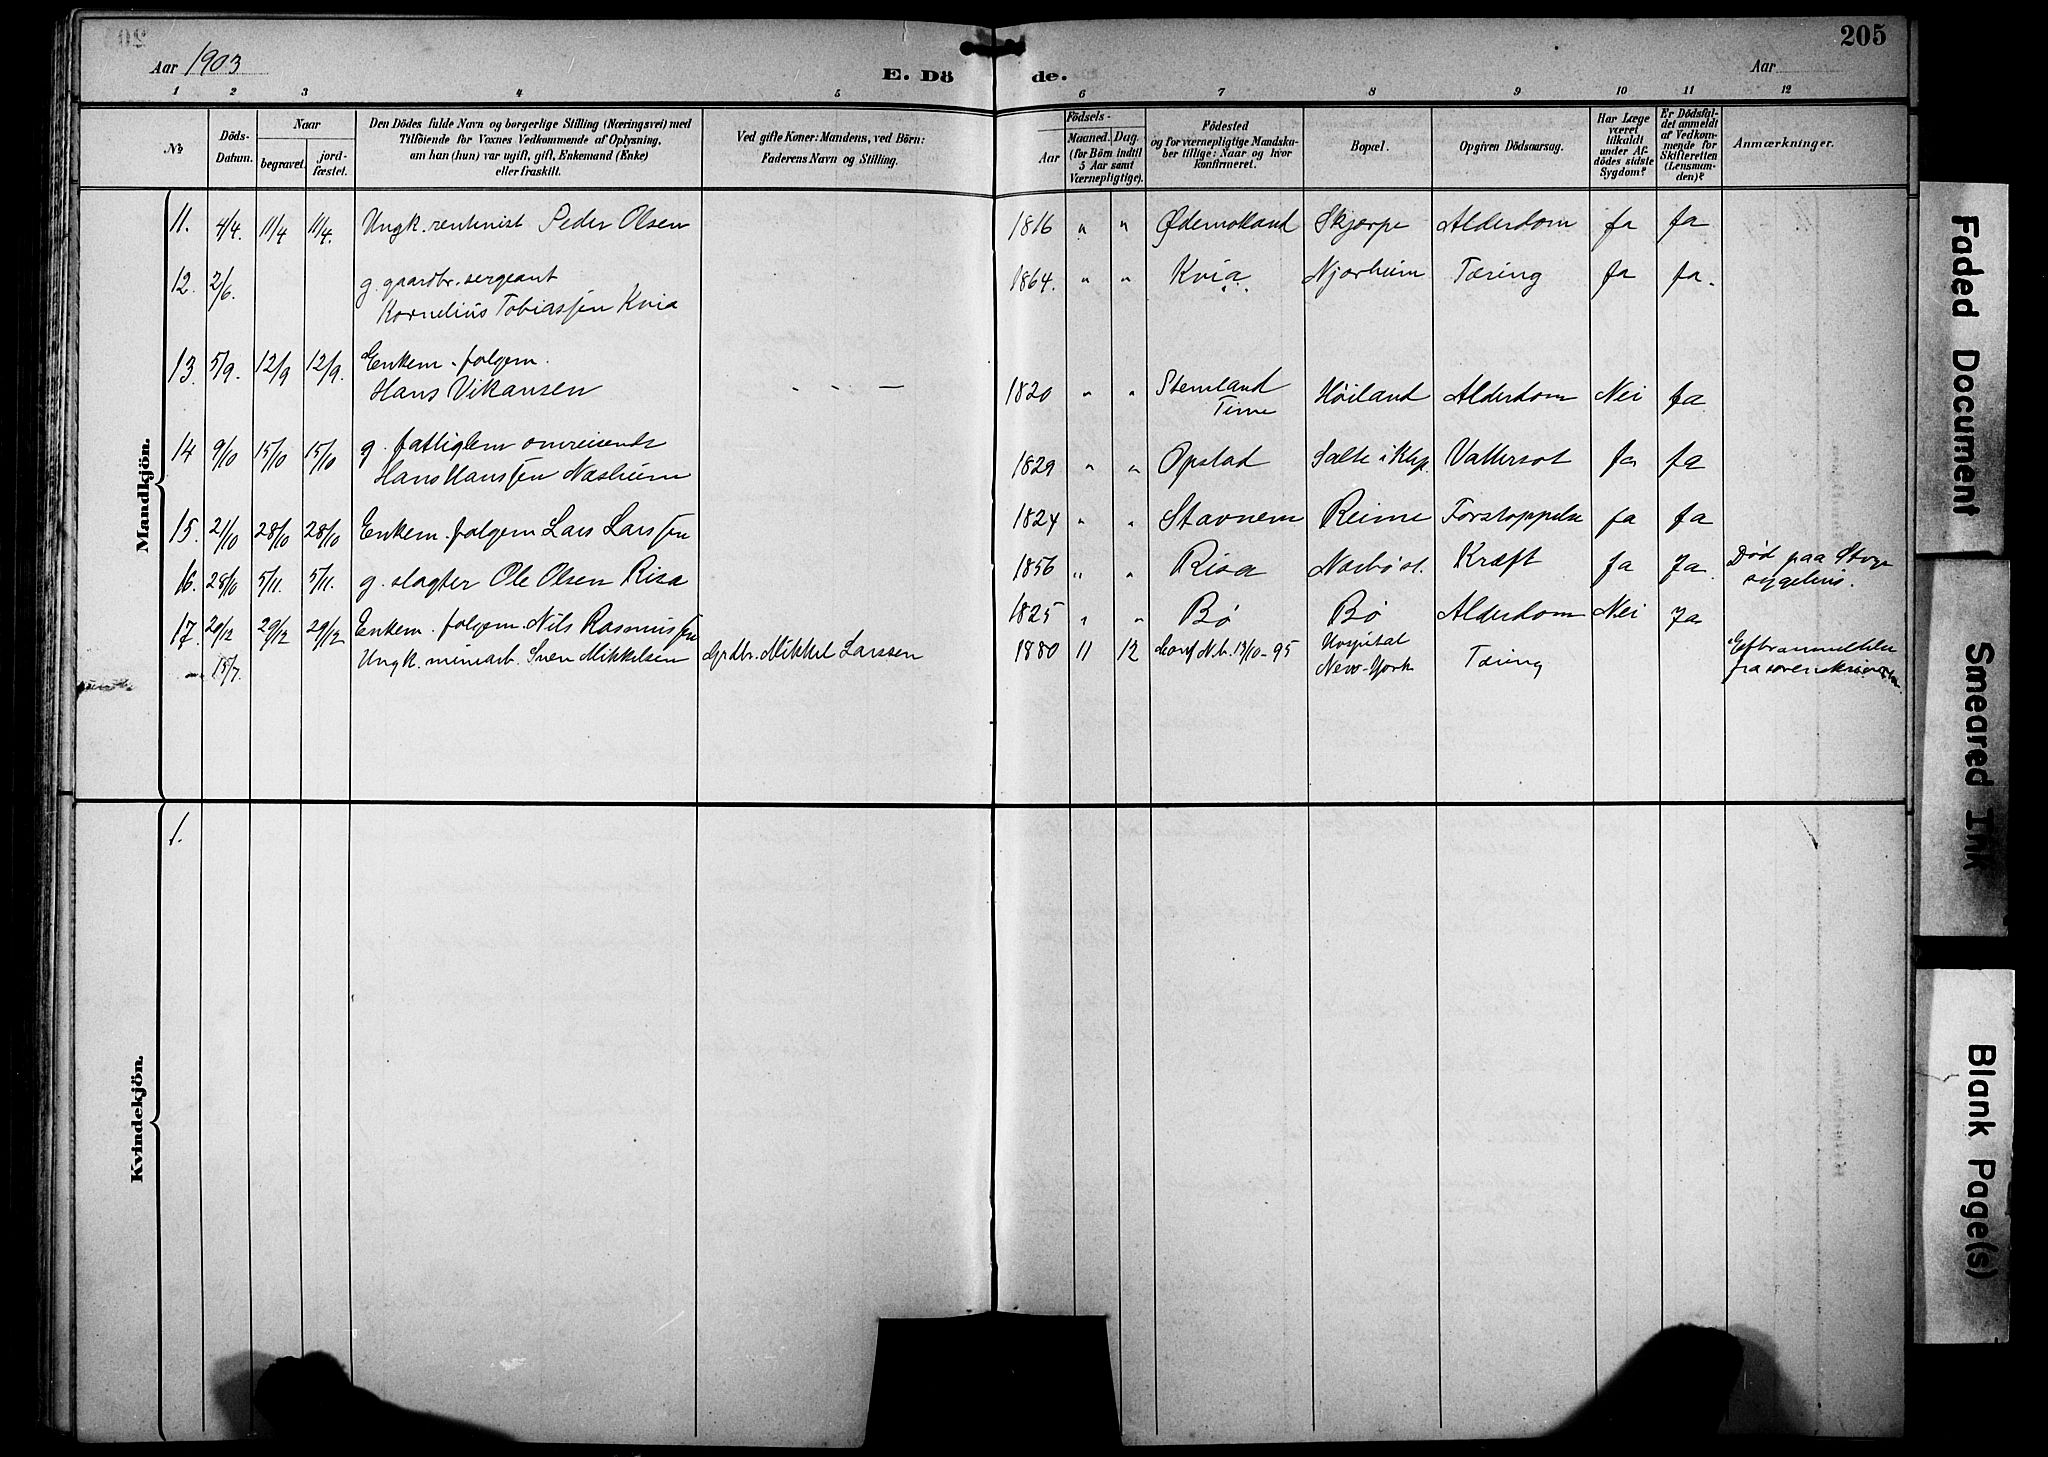 205
Aar 1903
E. Dö
de.
Aar
1 2 3 4 5 6 7 8 9 10 11 12
No
Döds-Datum.
Naar
begravet.
jord-fæstet.
Den Dödes fulde Navn og borgerlige Stilling (Næringsvei) med
Tilföiende for Voxnes Vedkommende af Oplysning,
om han (hun) var ugift, gift, Enkemand (Enke)
eller fraskilt.
Ved gifte Koner: Mandens, ved Börn:
Faderens Navn og Stilling.
Födsels-
Aar
Maaned. Dag.
(for Börn indtil
5 Aar samt
Værnepligtige).
Födested
og for værnepligtige Mandska-
ber tillige: Naar og hvor
konfirmeret.
Bopæl.
Opgiven Dödsaarsag.
Har Læge
været
tilkaldt
under Af-
dödes sidste
Sygdom?
Er Dödsfal-
det anmeldt
af Vedkom-
mende for
Skifteretten
(Lensman-
den)?
Anmærkninger.
Mandkjön.
11. 4/4. 11/4 11/4. Ungk. rentenist Peder Olsen 1816 " " Ødemotland Skjærpe Alderdom Ja Ja
12. 2/6. g. gaardbr. sergeant
Kornelius Tobiassen Kvia 1864. " " Kvia Njærheim Tæring Ja Ja.
13. 5/9. 12/9 12/9. Enkem. folgem.
Hans Vikansen 1820 " " Stemland
Time Høiland Alderdom Nei Ja
14 9/10 15/10 15/10 g. fattiglem omreisende
Hans Hanssen Næsheim 1829 " " Opstad Salte i Klep. Vattersot Ja Ja
15. 21/10 28/10 28/10 Enkem. folgem Lars Larssen 1824 " " Stavnem Reime Forstoppelse Ja Ja
16. 28/10 5/11. 5/11. g. slagter Ole Olsen Risa 1856 " " Risa Nærbø st. Kræft Ja Ja. Død paa
17. 20/12 29/12 29/12 Enkem. folgem. Nils Rasmussen 1825 " " Bø Bø Alderdom Nei Ja
18/7. Ungk. minearb. Sven Mikkelsen Grdbr. Mikkel Larssen 1880 11 12 Conf N.b. 13/10-95 Hospital
New-York Tæring
Kvindekjön.
1.
Faded Document
Smeared Ink
Blank Page(s)